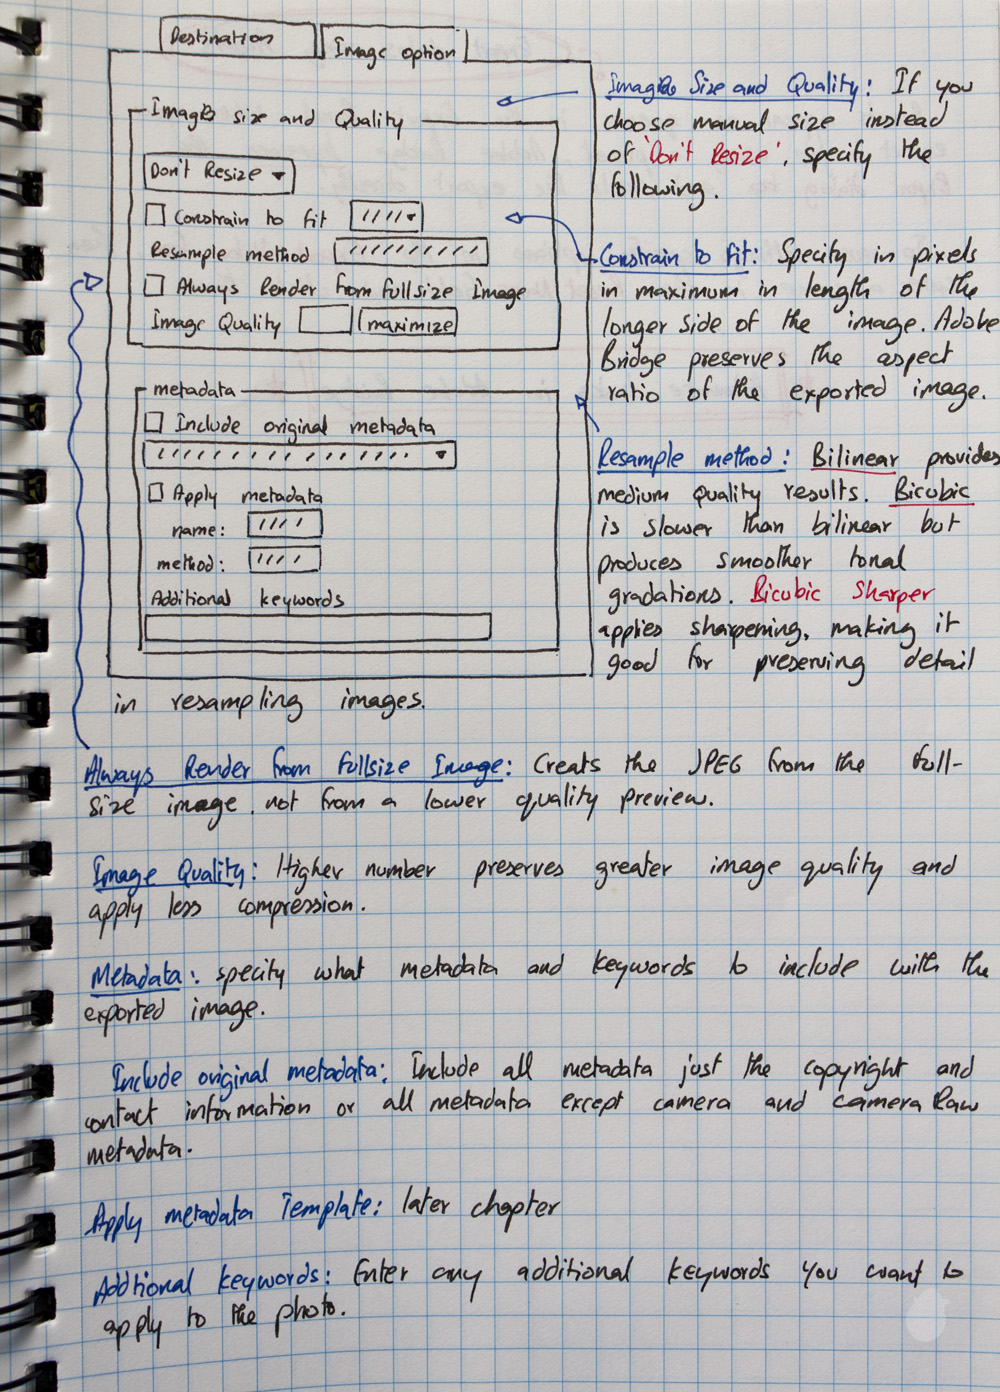 Destination
Image option
Image size and Quality
Don't Resize
Constrain to fit
Resample method
Always Render from fullsize Image
Image Quality
maximize
metadata
Include original metadata
Apply metadata
name:
method:
Additional keywords
Image Size and Quality: If you
choose manual size instead
of 'Don't Resize', specify the
following.
Constrain to fit: Specify in pixels
in maximum in length of the
longer side of the image. Adobe
Bridge preserves the aspect
ratio of the exported image.
Resample method: Bilinear provides
medium quality results. Bicubic
is slower than bilinear but
produces smoother tonal
gradations. Bicubic Sharper
applies sharpening, making it
good for preserving detail
in resampling images.
Always Render from fullsize Image: Creats the JPEG from the full-
size image, not from a lower quality preview.
Image Quality: Higher number preserves greater image quality and
apply less compression.
Metadata: specify what metadata and keywords to include with the
exported image.
Include original metadata: Include all metadata just the copyright and
contact information or all metadata except camera and camera Raw
metadata.
Apply metadata Template: later chapter
Addtional keywords: Enter any additional keywords you want to
apply to the photo.